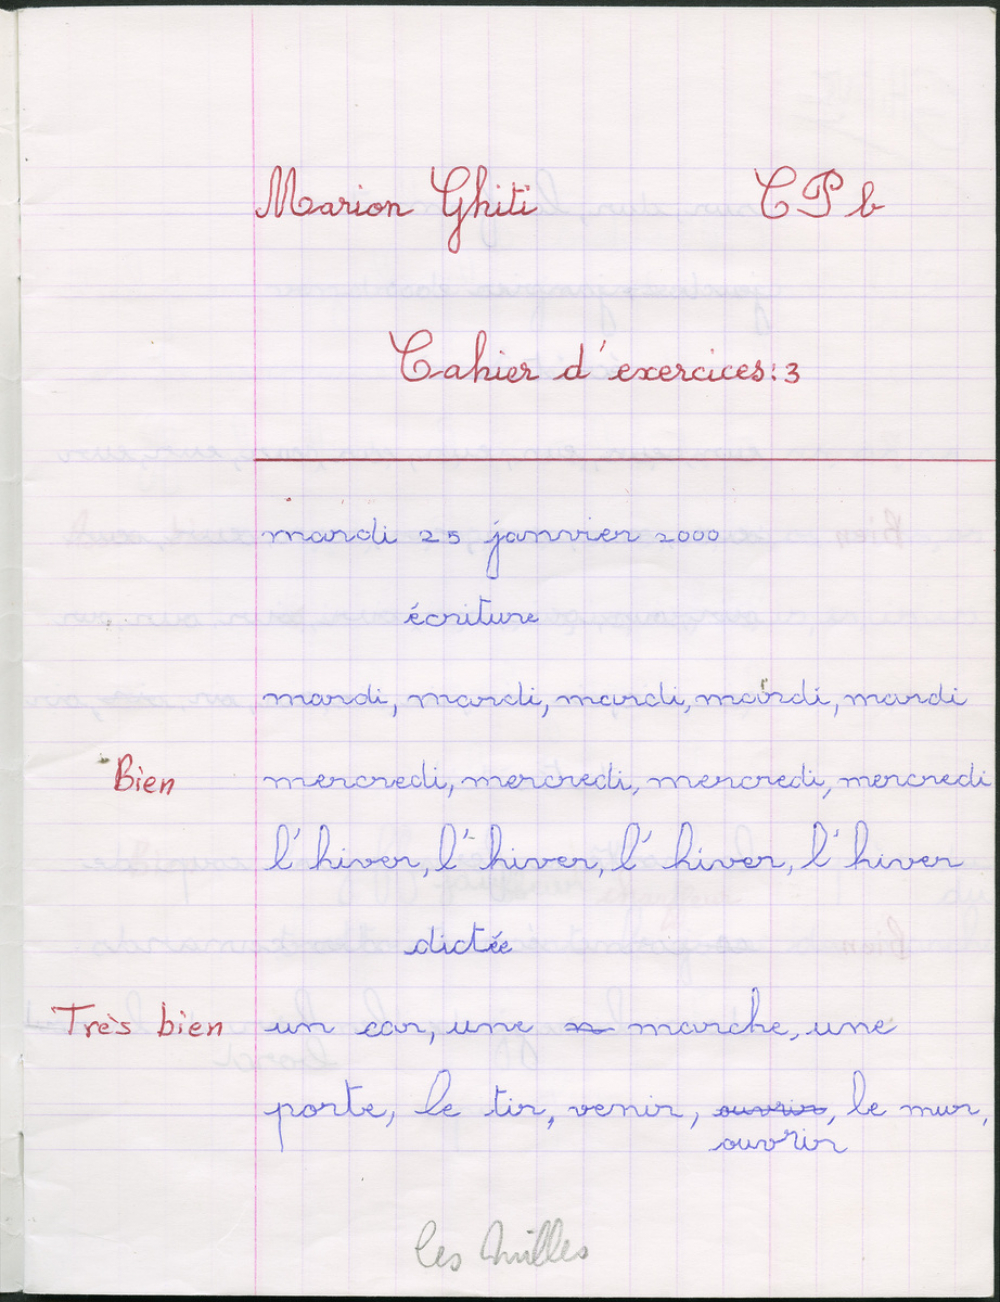 Marion Ghiti CP b
Cahier d'exercices : 3
mardi 25 janvier 2000
écriture
mardi, mardi, mardi, mardi, mardi
Bien mercredi, mercredi, mercredi, mercredi
l'hiver, l'hiver, l'hiver, l'hiver
dictée
Très bien un car, une marche, une
porte, le tir, venir, ouvrir, le mur,
ouvrir
Les Milles